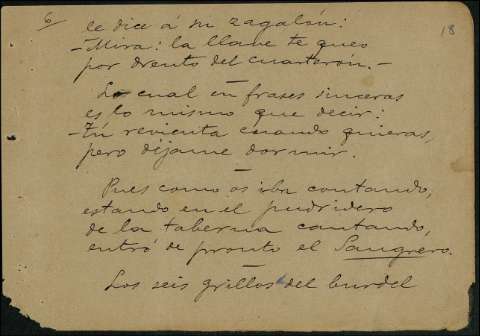 6/
18
le dice á su zagalón:
-Mira: la llave te queo
por drento del cuarterón.-
Lo cual en frases sinceras
es lo mismo que decir:
-Tú revienta cuando quieras,
pero déjame dormir.
Pues como os iba contando,
estando en el pudridero
de la taberna cantando,
entró de pronto el Sangrero.
Los seis grillos del burdel